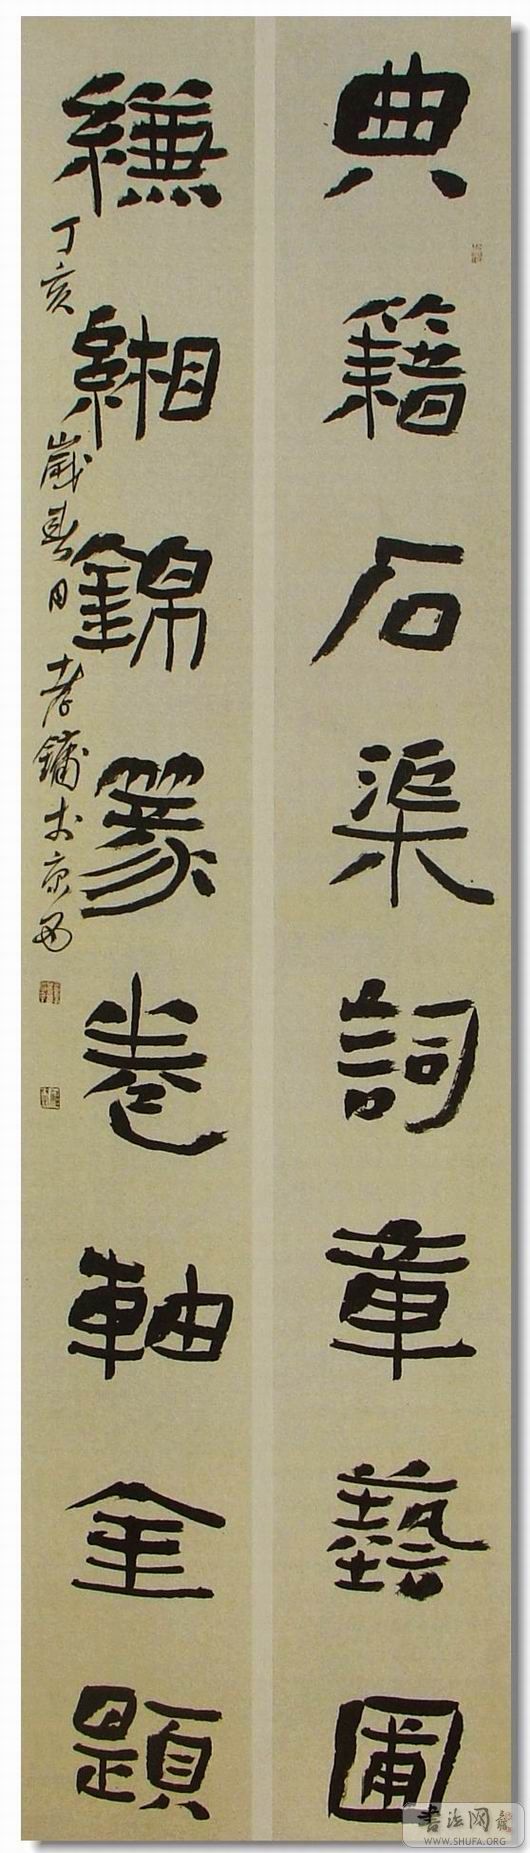 典籍石渠詞章藝圃
縑緗錦篆卷軸金題
丁亥歲春月孝鏞於京
书法网
WWW.SHUFA.ORG